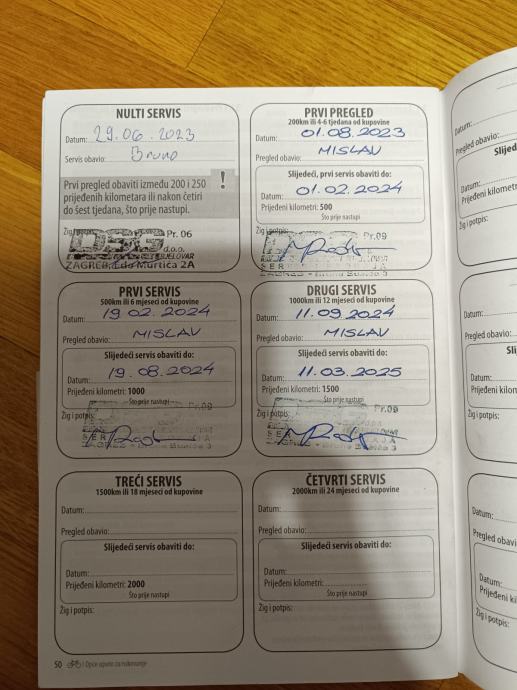 NULTI SERVIS
Datum: 29.06.2023
Servis obavio: Bruno
Prvi pregled obaviti između 200 i 250
prijeđenih kilometara ili nakon četiri
do šest tjedana, što prije nastupi.
!
Pr.06
DSG d.o.o.
BJELOVAR
ZAGREB, Ede Murtića 2A
PRVI PREGLED
200km ili 4-6 tjedana od kupovine
Datum: 01.08.2023
Pregled obavio: MISLAV
Slijedeći, prvi servis obaviti do:
Datum: 01.02.2024
Prijeđeni kilometri: 500
Što prije nastupi
Žig i potpis:
Pr.09
PRVI SERVIS
500km ili 6 mjeseci od kupovine
Datum: 19.02.2024
Pregled obavio: MISLAV
Slijedeći servis obaviti do:
Datum: 19.08.2024
Prijeđeni kilometri: 1000
Što prije nastupi
Žig i potpis:
Pr.09
DRUGI SERVIS
1000km ili 12 mjeseci od kupovine
Datum: 11.09.2024
Pregled obavio: MISLAV
Slijedeći servis obaviti do:
Datum: 11.03.2025
Prijeđeni kilometri: 1500
Što prije nastupi
Žig i potpis:
Pr.09
TREĆI SERVIS
1500km ili 18 mjeseci od kupovine
Datum:
Pregled obavio:
Slijedeći servis obaviti do:
Datum:
Prijeđeni kilometri: 2000
Što prije nastupi
Žig i potpis:
ČETVRTI SERVIS
2000km ili 24 mjeseci od kupovine
Datum:
Pregled obavio:
Slijedeći servis obaviti do:
Datum:
Prijeđeni kilometri:
Što prije nastupi
Žig i potpis:
50 | Opće upute za rukovanje
Datum:
Pregled obavio:
Datum:
Žig i potpis:
Datum:
Pregled obavio:
Datum:
Žig i potpis:
Datum:
Datum:
Žig i potpis: